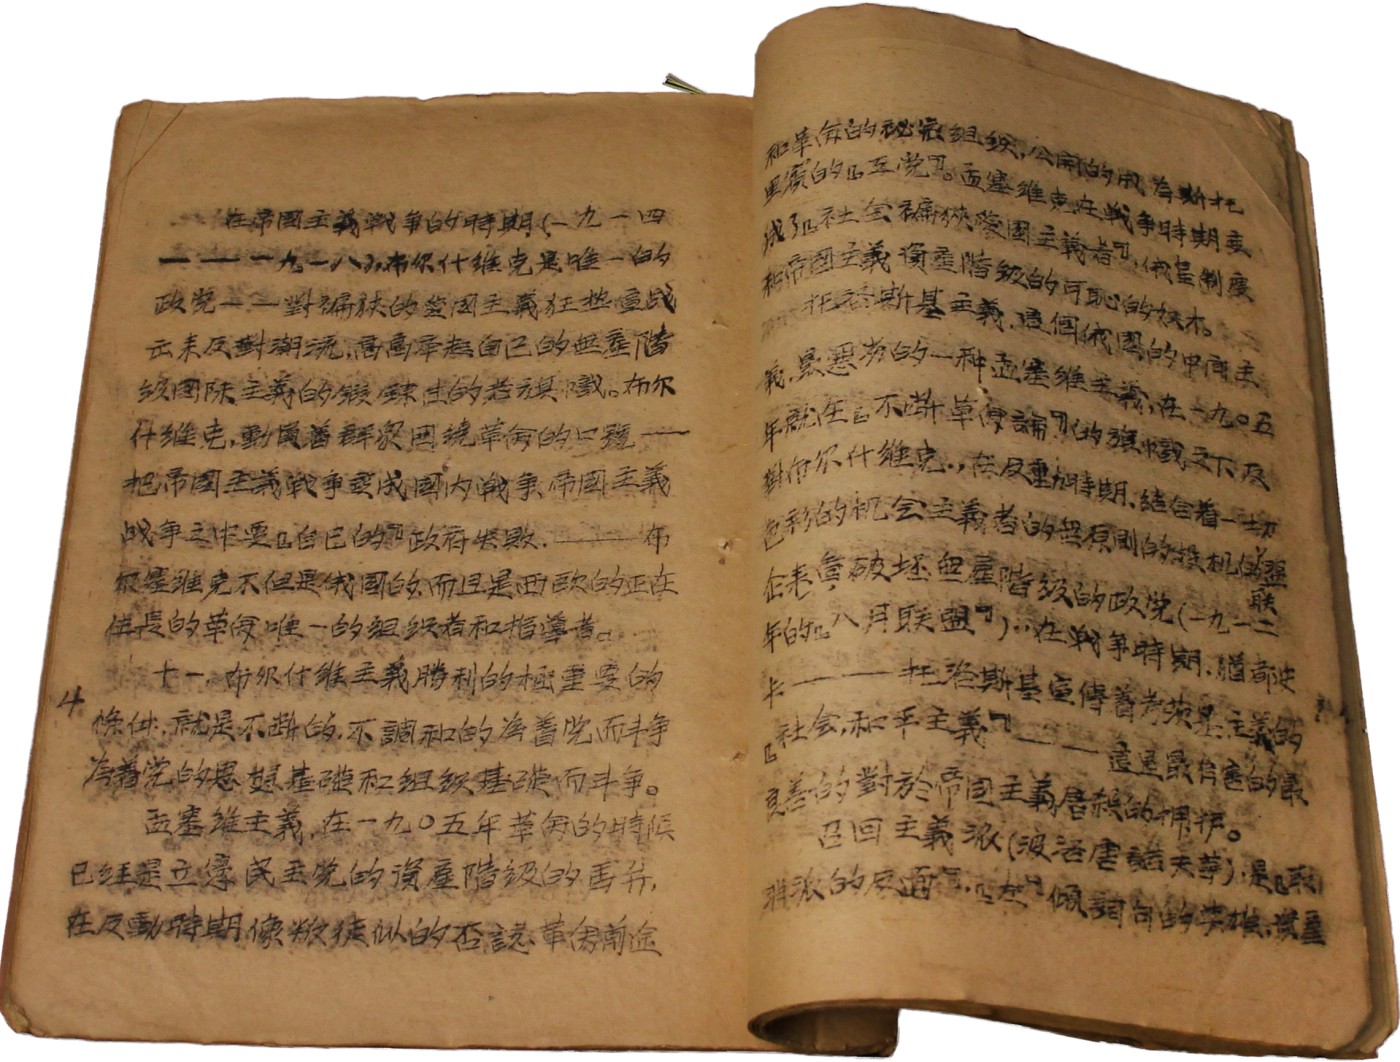 在帝國主義戰爭的時期(一九一四
——一九一八),布尔什維克是唯一的
政党——對褊狹的愛國主義狂热宣战
云來反對潮流,高高举起自己的無產階
級國际主義的鍛鍊的旗幟。布尔
什維克,動員着群眾囬繞革命的口號——
把帝國主義戰争变成國内戰争,帝國主義
战争之中要『自己的』政府失敗,——布
尔塞維克不但是俄國的,而且是西欧的正在
生長的革命唯一的組织者和指導者。
十一,布尔什維主義勝利的極重要的
4
條件,就是不断的,不調和的为着党而斗争
为着党的思想基礎和組织基礎而斗争。
孟塞維主義,在一九〇五年革命的時候
已経是立憲民主党的資產階級的再弁,
在反動時期像叛徒似的否認革命前途
和革命的秘密組织,公開的成为斯托
里賓的『工党』。孟塞維克在戰争時期变
成了『社会褊狹愛國主義者』,俄皇制度
和帝國主義資產階級的可恥的奴才。
托洛斯基主義,這個俄國的中间主
義,最惡劣的一种孟塞維主義,在一九〇五
年就在『不断革命論』的旗幟之下反
對布尔什維克,在反動時期,结合着一切
色彩的机会主義者的無原則的投机的盟
联
企表負破坏無產階級的政党(一九一二
年的『八月联盟』),在戰争時期,猶都史
卡——托洛斯基宣傳着考茨基主義的
『社会,和平主義』——這是最有害的最
良善的對於帝國主義屠殺的拥护。
召回主義派(波洛唐諾夫等),是『取
消派的反面』,『左』傾詞句的英雄,資產